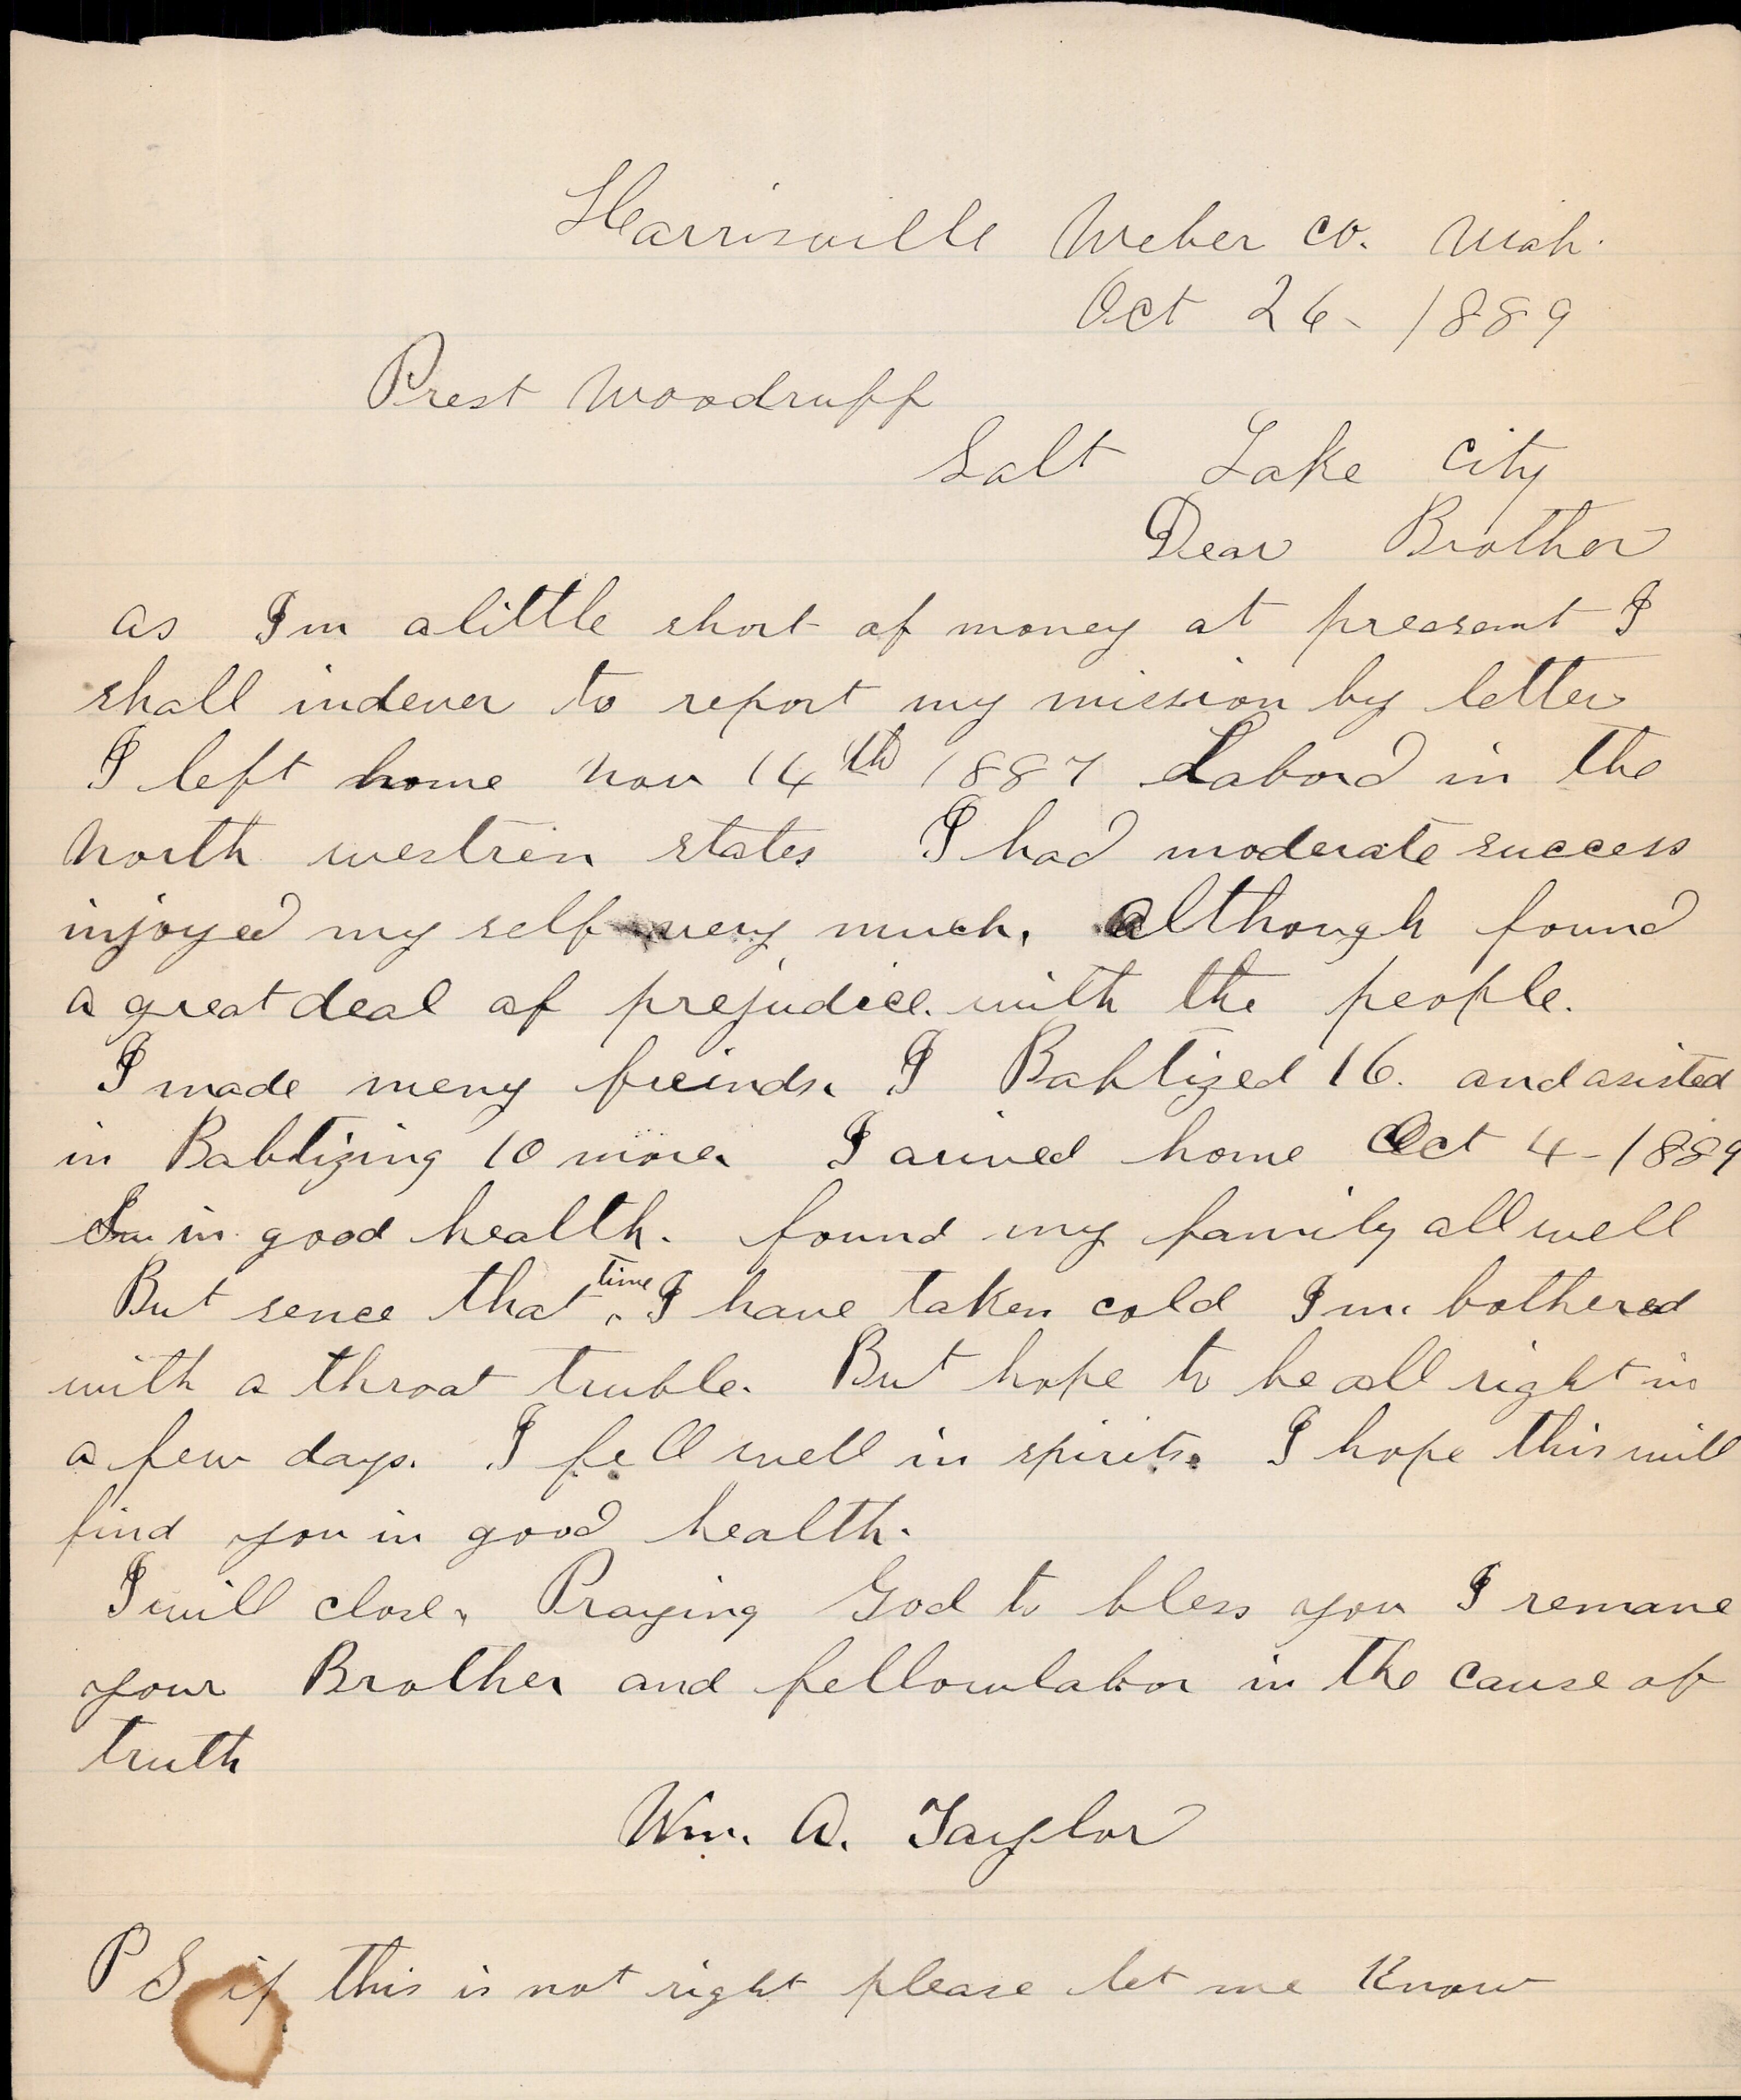 Harrisville Weber co. Utah.
Oct 26 - 1889
Prest Woodruff
Salt Lake City
Dear Brother
as I'm a little short of money at preasent I
shall indever to report my mission by letter
I left home Nov 14th 1887 Labord in the
North westren states I had moderate success
injoyed my self very much, although found
a great deal of prejudice with the people.
I made meny freinds. I Babtized 16. and asisted
in Babtizing 10 more. I arived home Oct 4 - 1889
in good health. found my family all well
But sence that time I have taken cold Im bothered
with a throat truble. But hope to be all right in
a few days. I fell well in spirits. I hope this will
find you in good health.
I will close. Praying God to bless you I remane
your Brother and fellowlabor in the cause of
truth
Wm. A. Taylor
P S if this is not right please let me know